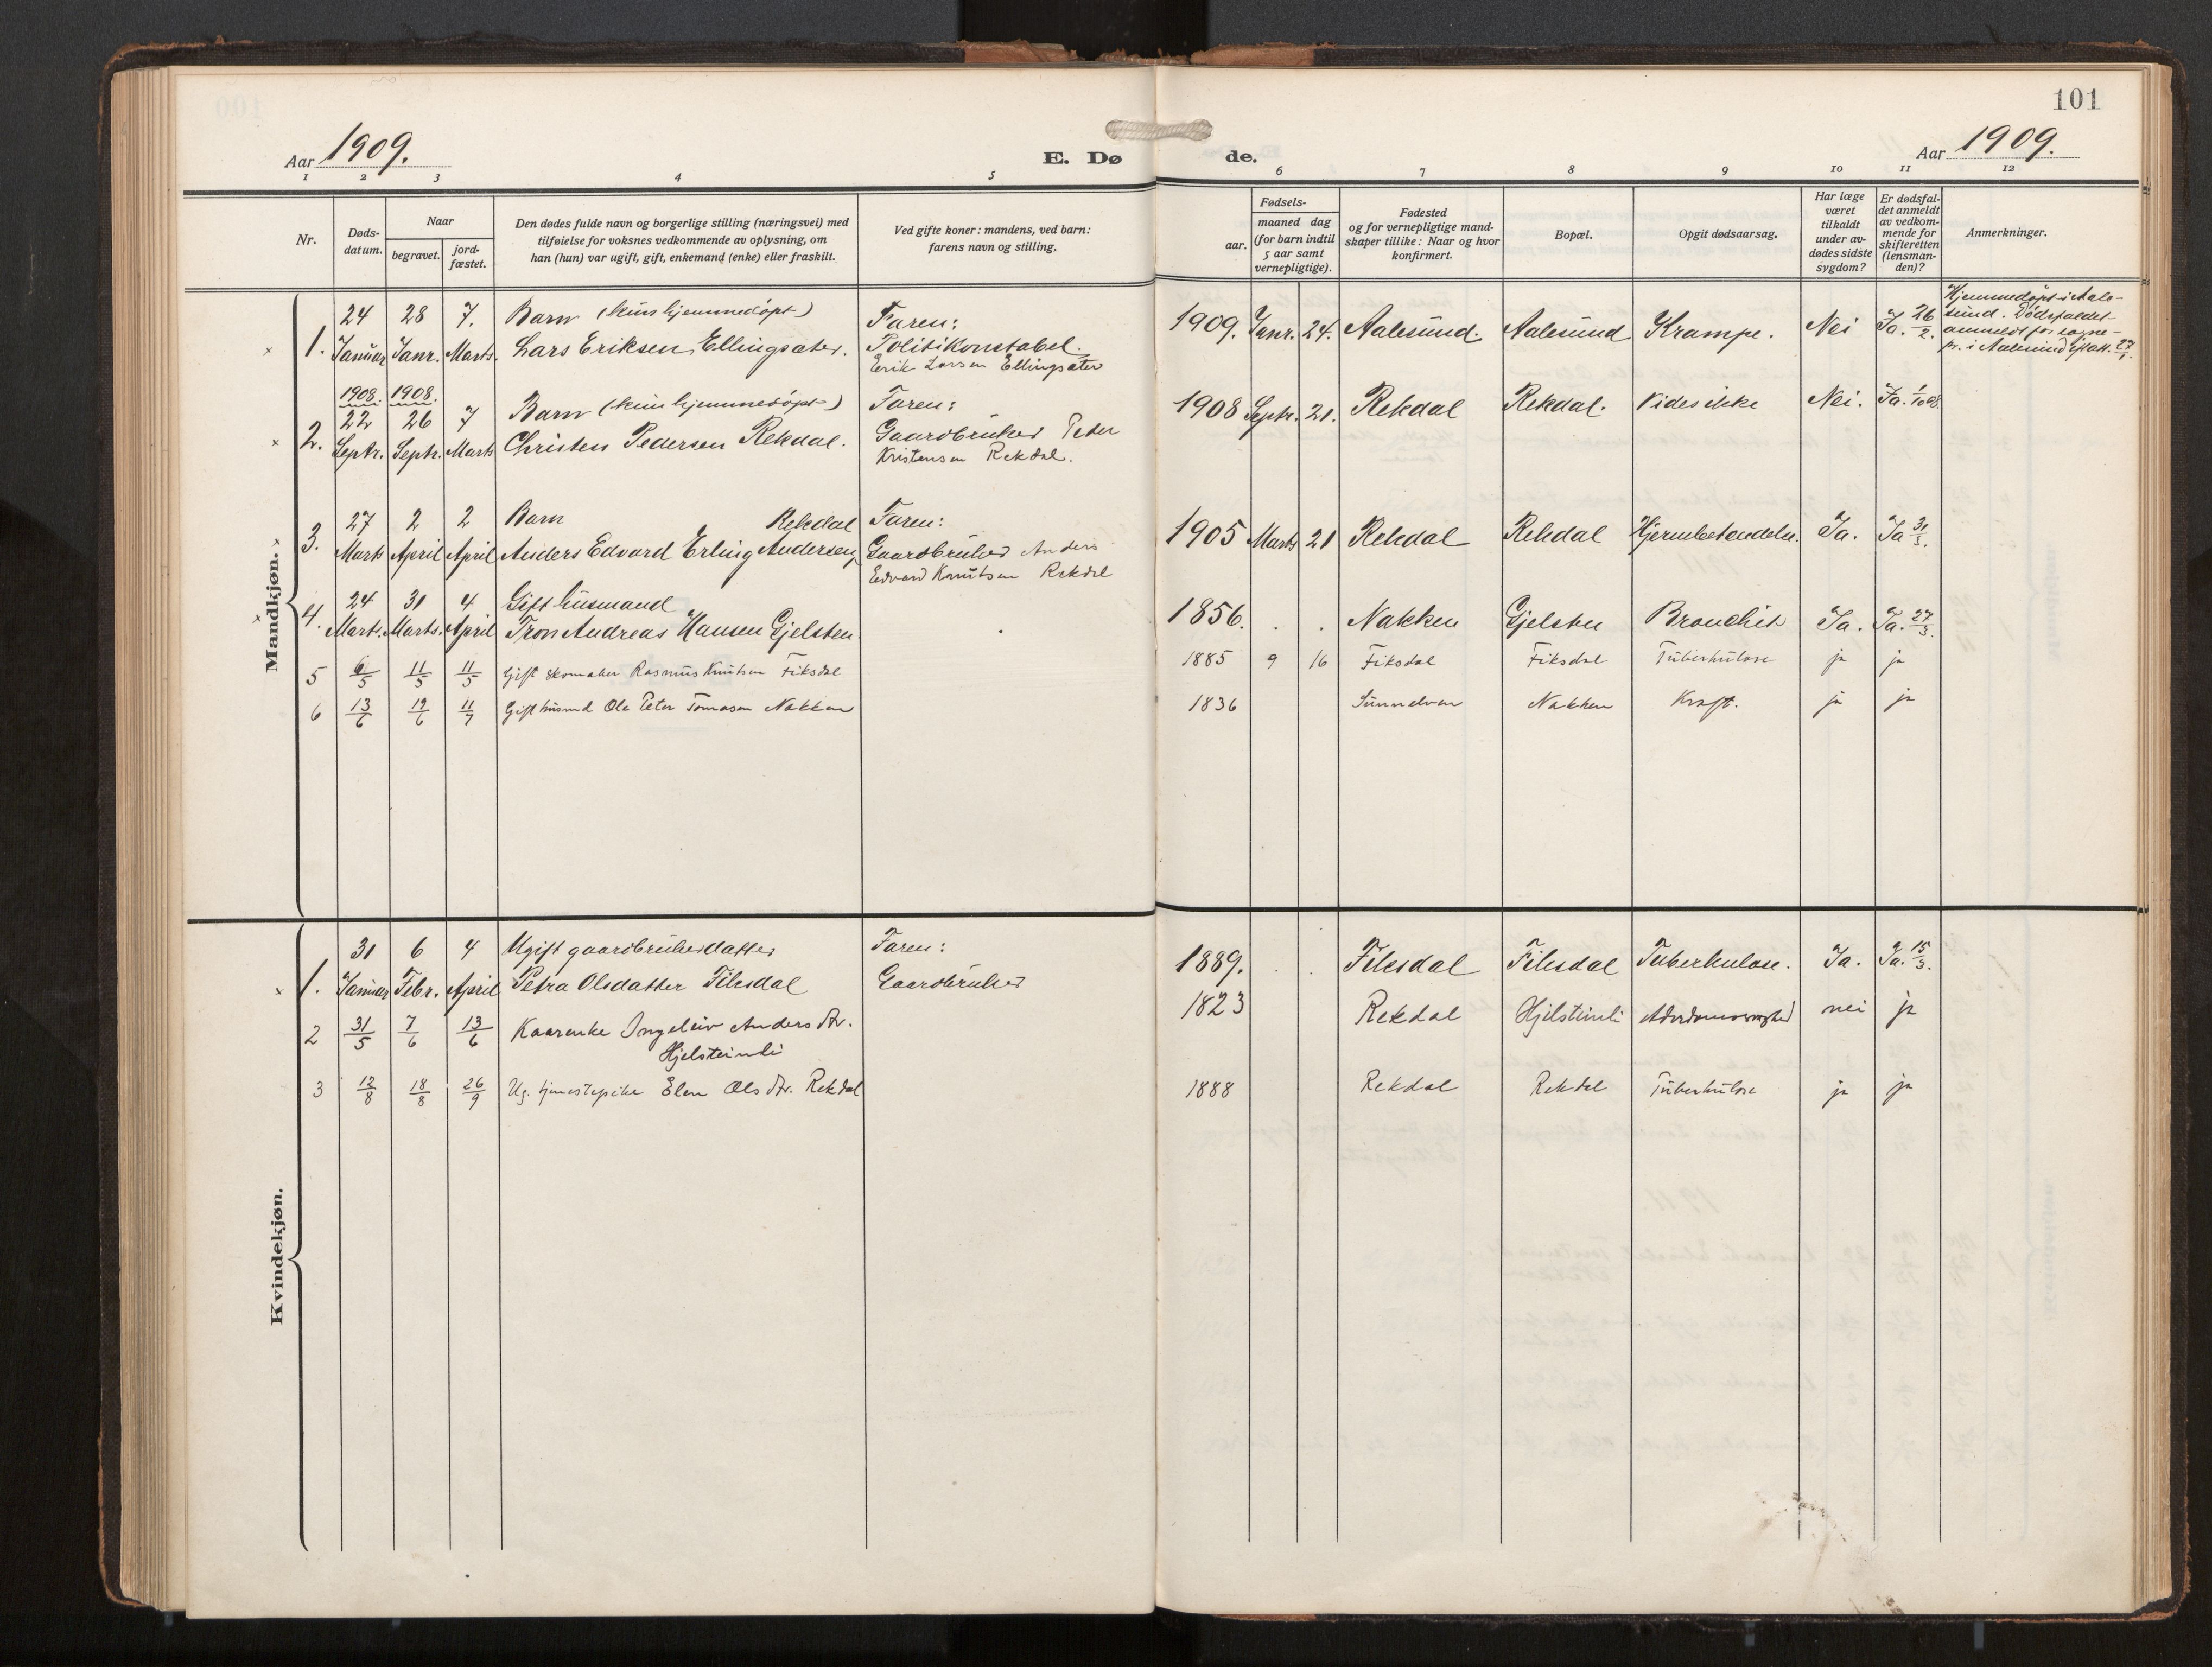 101
Aar 1909.
E. Dø
de.
Aar 1909.
1 2 3 4 5 6 7 8 9 10 11 12
Nr.
Døds-
datum.
Naar
begravet.
jord-
fæstet.
Den dødes fulde navn og borgerlige stilling (næringsvei) med
tilføielse for voksnes vedkommende av oplysning, om
han (hun) var ugift, gift, enkemand (enke) eller fraskilt.
Ved gifte koner: mandens, ved barn:
farens navn og stilling.
Fødsels-
aar.
maaned dag
(for barn indtil
5 aar samt
vernepligtige).
Fødested
og for vernepligtige mand-
skaper tillike: Naar og hvor
konfirmert.
Bopæl.
Opgit dødsaarsag.
Har læge
været
tilkaldt
under av-
dødes sidste
sygdom?
Er dødsfal-
det anmeldt
av vedkom-
mende for
skifteretten
(lensman-
den)?
Anmerkninger.
Mandkjøn.
1. 24 Januar 28 Janr. 7. Marts
Barn (kun hjemmedöpt)
Lars Eriksen Ellingsæter.
Faren:
Politikonstabel.
Erik Larsen Ellingsæter
1909. Janr. 24. Aalesund. Aalesund Krampe. Nei Ja. 26/2.
Hjemmedöpt i Aale-
sund. Dödsfaldet
anmeldt for sogne-
pr. i Aalesund
2. 1908 22 Septr. 1908 26 Septr. 7 Marts
Barn (kun hjemmedöpt)
Christen Pedersen Rekdal.
Faren:
Gaardbruker Peter
Kristensen Rekdal.
1908 Septr. 21. Rekdal Rekdal. Vides ikke Nei. Ja. 1/10 08.
3. 27 Marts 2 April 2 April
Barn Rekdal
Anders Edvard Erling Andersen
Faren:
Gaardbruker Anders
Edvard Knutsen Rekdal
1905 Marts 21 Rekdal Rekdal Hjernebetændelse. Ja. Ja 31/3.
4. 24 Marts. 31 Marts. 4 April
Gift husmand
Tron Andreas Hansen Gjelsten
1856. . . Nakken Gjelsten Bronchit Ja. Ja. 27/3.
5 6/5 11/5 11/5 Gift skomaker Rasmus Knutsen Fiksdal
1885 9 16 Fiksdal Fiksdal Tuberkulose ja ja
6 13/6 19/6 11/7 Gift husmd Ole Peter Tomasen Nakken
1836 Sunnelven Nakken Kræft. ja ja
Kvindekjøn.
1. 31 Januar 6 Febr. 4 April
Ugift gaardbrukerdatter
Petra Olsdatter Fiksdal
Faren:
Gaardbruker
1889. . . Fiksdal Fiksdal Tuberkulose. Ja. Ja. 15/3.
2 31/5 7/6 13/6 Kaarenke Ingeleiv Anders dtr.
Hjelsteinli
1823 Rekdal Hjelsteinli Alderdomssvaghed nei ja
3 12/8 18/8 26/9 Ug. tjenestepike Elen Ols dtr. Rekdal
1888 Rekdal Rekdal Tuberkulose ja ja